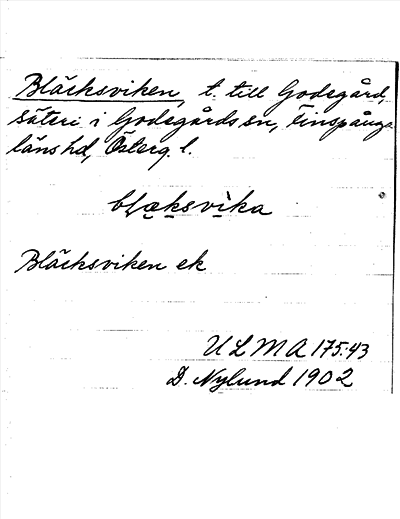 Bläcksviken, t. till Godegård,
säteri i Godegårds sn, Finspånga
läns hd, Österg. l.
blæksvìka
Bläcksviken ek
ULMA 175:43
D. Nylund 1902